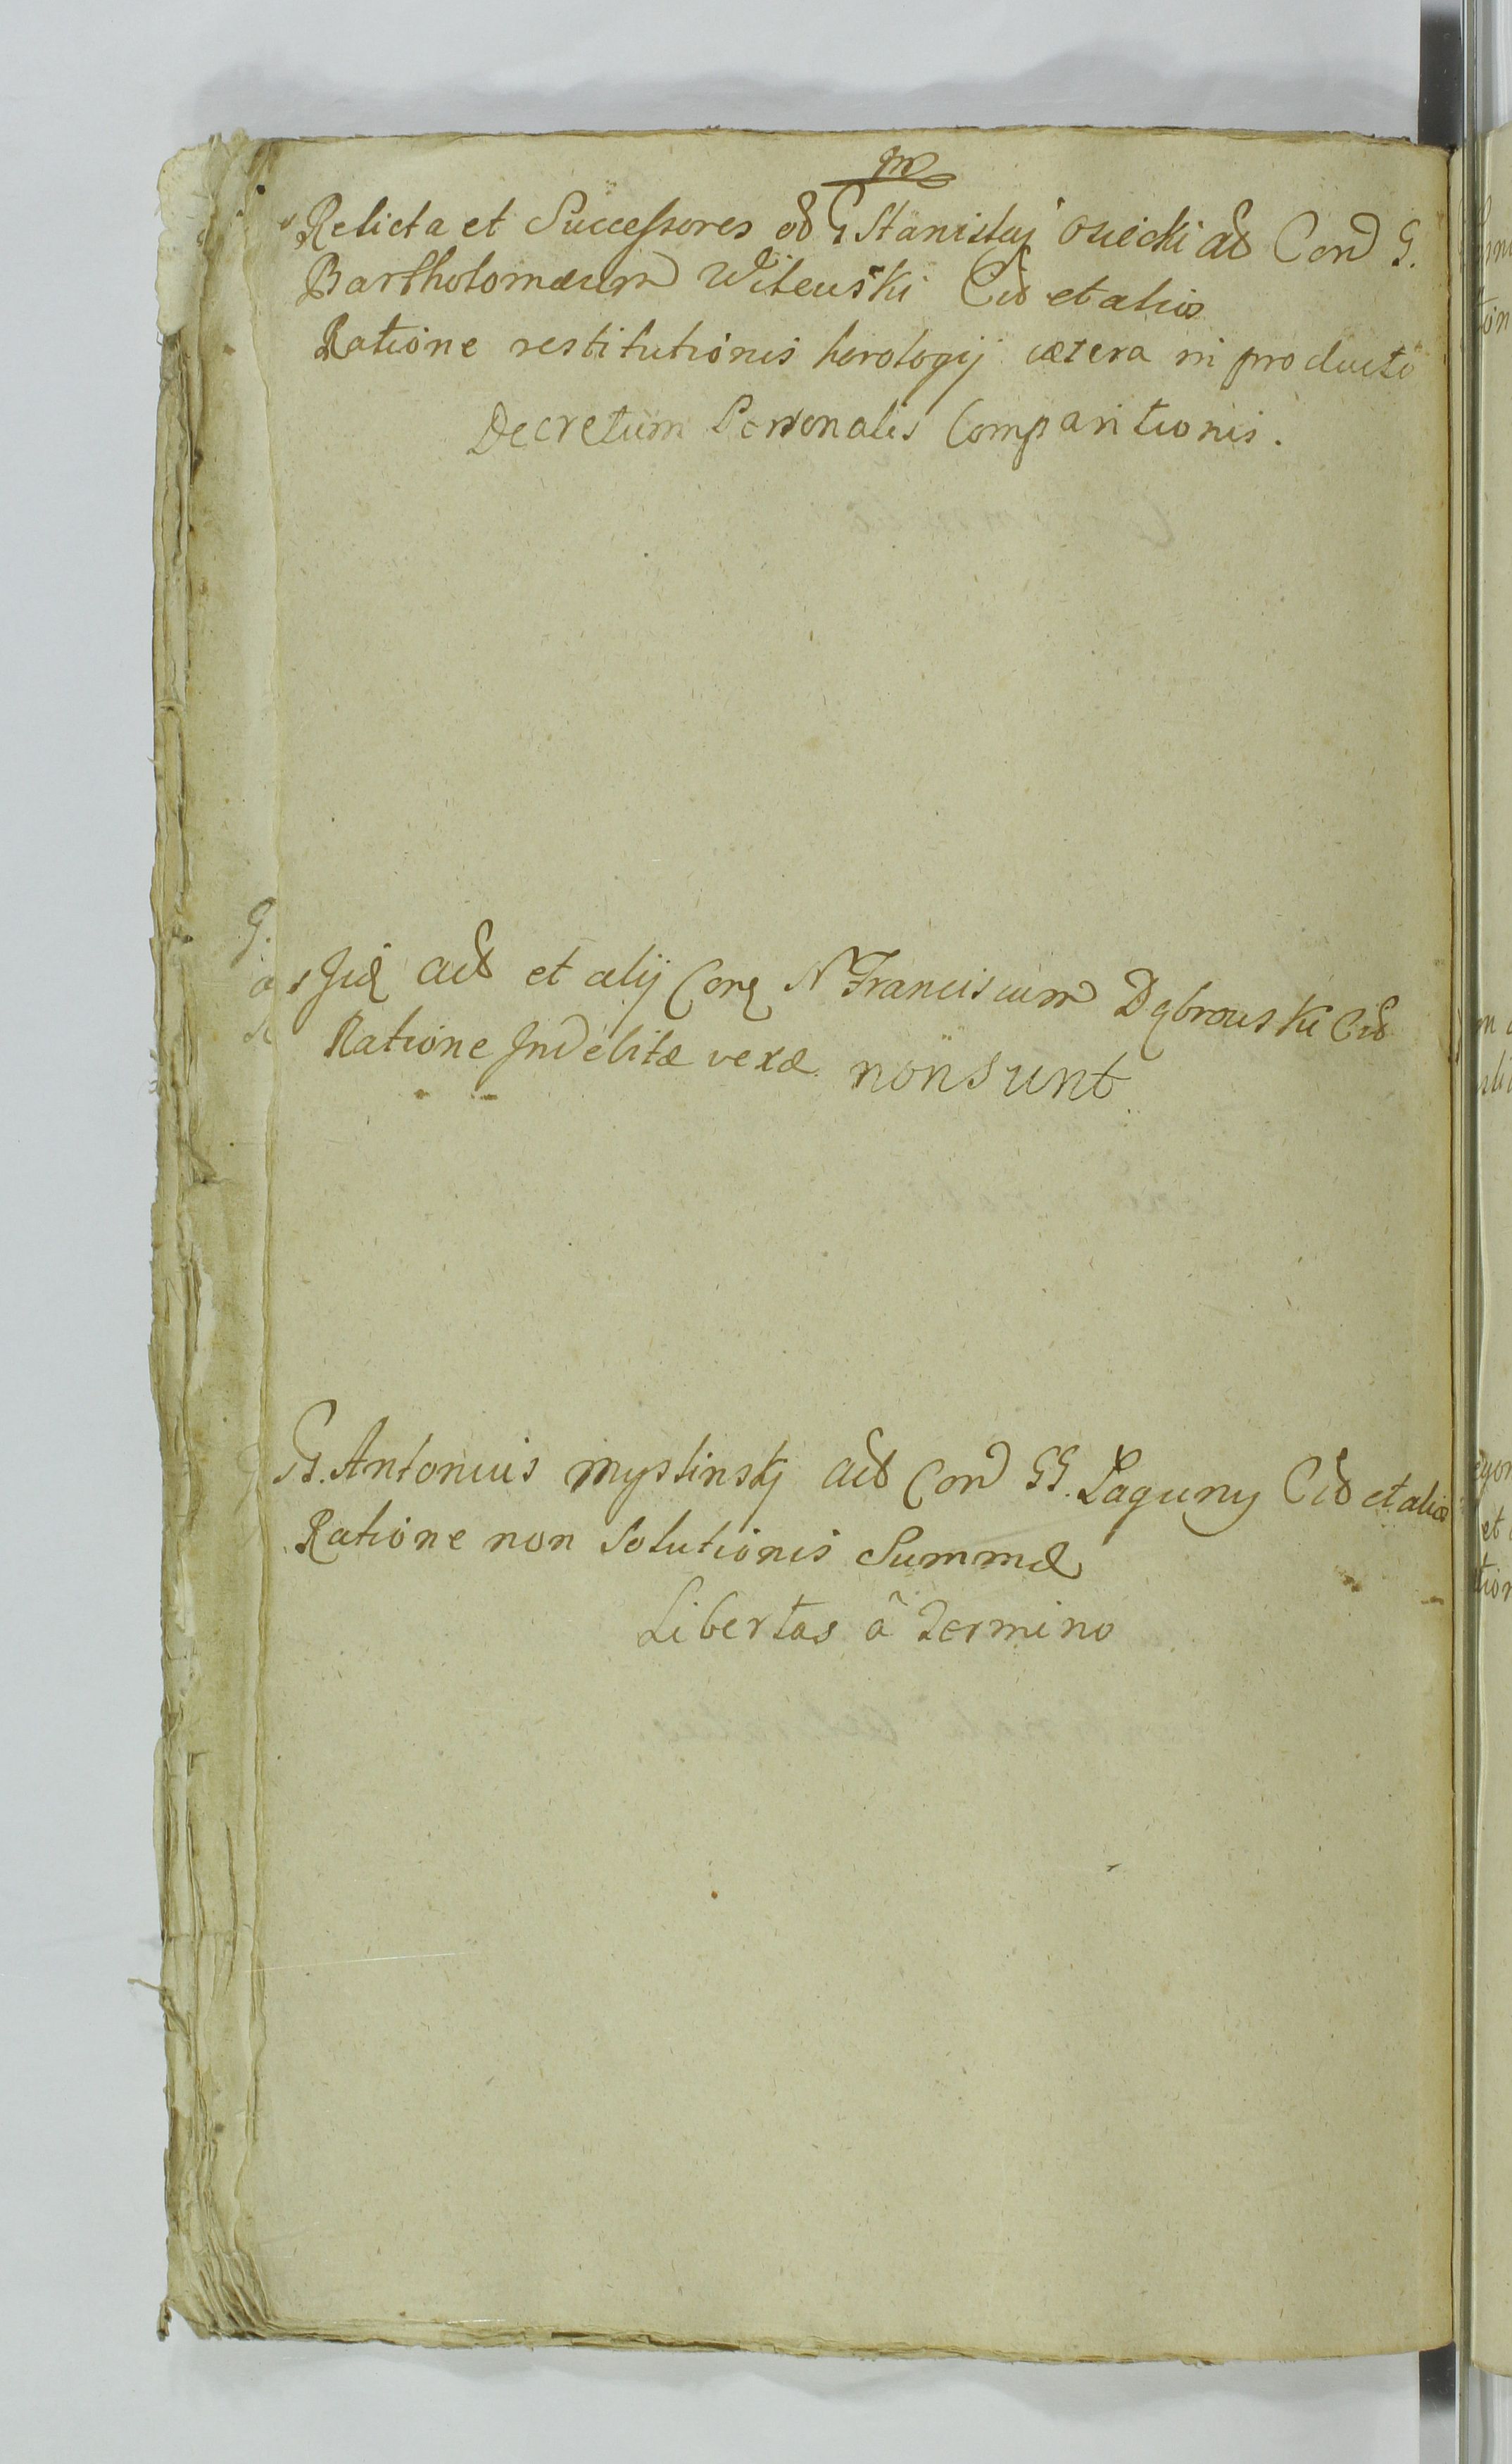 Relicta et Successores od G Stanislaj osiecki ad Con G.
Bartholomæum Witeuski Cid et alios
Ratione restitutionis horologij cætera in producto
Decretum Personalis Comparitionis.
Jid act et alij Con N Franciscum Dąbrouski Cid
Ratione Indebitæ vexæ nonsunt
G. Antonius myslinskj act Con GG. Laguny Cid et alios
Ratione non Solutionis Summæ
Libertas â Termino